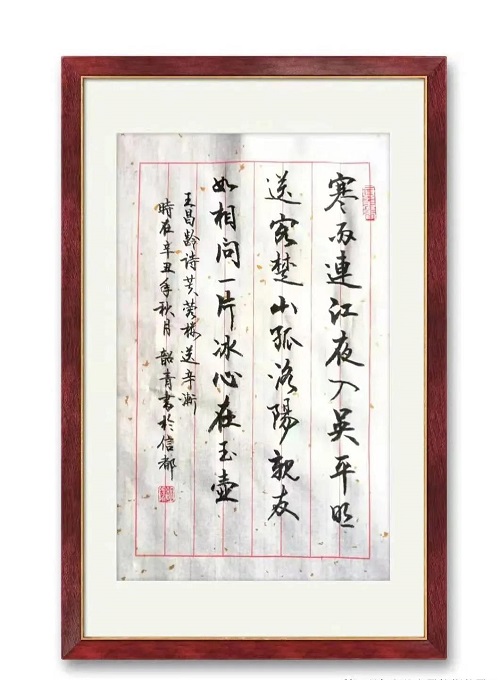 寒雨連江夜入吴平明
送客楚山孤洛陽親友
如相问一片冰心在玉壶
王昌龄诗芙蓉楼送辛渐
時在辛丑年秋月韶青書於信都